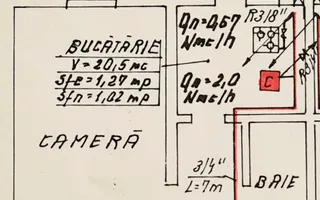 BUCĂTĂRIE
V = 20,5 mc
Sfe = 1,27 mp
Sfn = 1,02 mp
Qn=0,67
Nmc/h
R3/8"
Qn=2,0
Nmc/h
C
CAMERĂ
3/4"
L=7m
BAIE